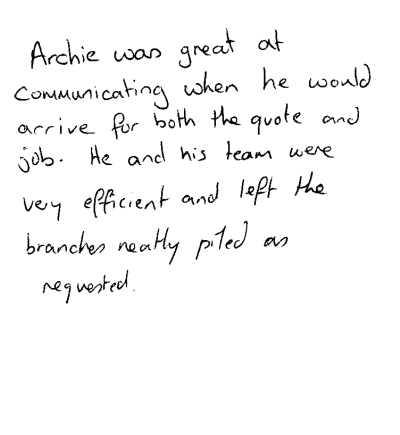 Archie was great at
communicating when he would
arrive for both the quote and
job. He and his team were
very efficient and left the
branches neatly piled as
requested.